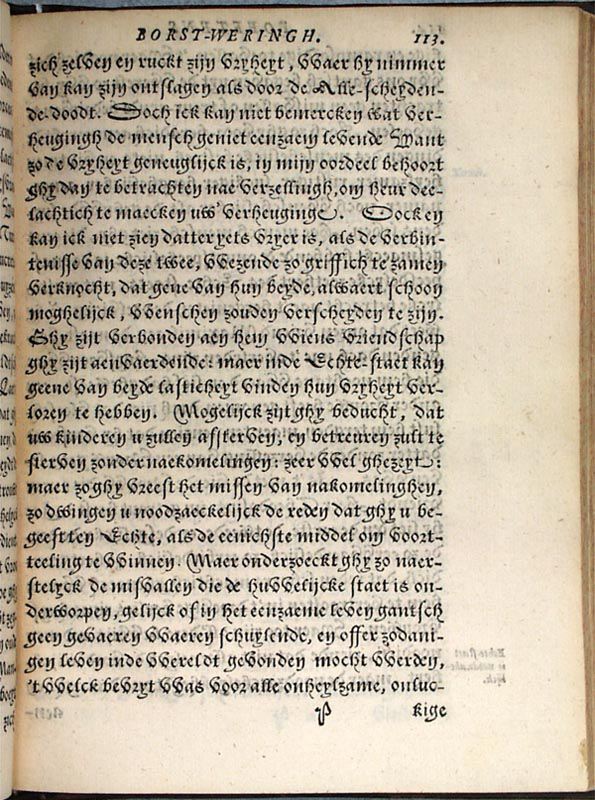 BORST-WERINGH. 113.
zich zelven en ruckt zijn Vryheyt, VVaer hy nimmer
Van kan zijn ontslagen als door de Alle-scheyden-
de-doodt. Doch ick kan niet bemercken Wat Ver-
heugingh de mensch geniet eenzaem levende Want
zo de Vryheyt geneuglijck is, in mijn oordeel behoort
ghy dan te betrachten nae Verzellingh, om heur dee-
lachtich te maecken uw' Verheuginge. Oock en
kan ick niet zien datter yets Vryer is, als de Verbin-
tenisse Van deze twee, VVezende zo griffich te zamen
Verknocht, dat gene Van hun beyde, alwaert schoon
moghelijck, VVenschen zouden Verscheyden te zijn.
Ghy zijt Verbonden aen hem VViens Vriendschap
ghy zijt aenVaerdende: maer inde Echte-staet kan
geene Van beyde lasticheyt Vinden hun Vryheyt Ver-
loren te hebben. Mogelijck zijt ghy beducht, dat
uw kinderen u zullen afsterven, en betreuren zult te
sterven zonder naekomelingen: zeer VVel ghezeyt:
maer zo ghy Vreest het missen Van nakomelinghen,
zo dwingen u noodzaeckelijck de reden dat ghy u be-
geest ten Echte, als de eenichste middel om Voort-
teeling te VVinnen. Maer onderzoeckt ghy zo naer-
stelyck de misVallen die de huVVelijcke staet is on-
derworpen, gelijck of in het eenzaeme leven gantsch
geen geVaeren VVaeren schuylende, en offer zodani-
gen leven inde VVereldt geVonden mocht VVerden,
't VVelck beVryt VVas Voor alle onheylzame, onluc-
P kige